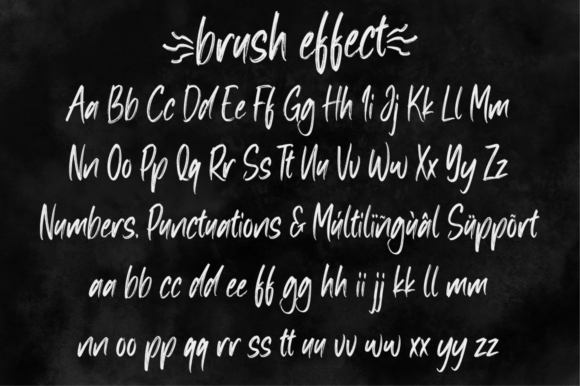 brush effect
Aa Bb Cc Dd Ee Ff Gg Hh Ii Jj Kk Ll Mm
Nn Oo Pp Qq Rr Ss Tt Uu Vv Ww Xx Yy Zz
Numbers, Punctuations & Múltilïñgùâl Süppõrt
aa bb cc dd ee ff gg hh ii jj kk ll mm
nn oo pp qq rr ss tt uu vv ww xx yy zz